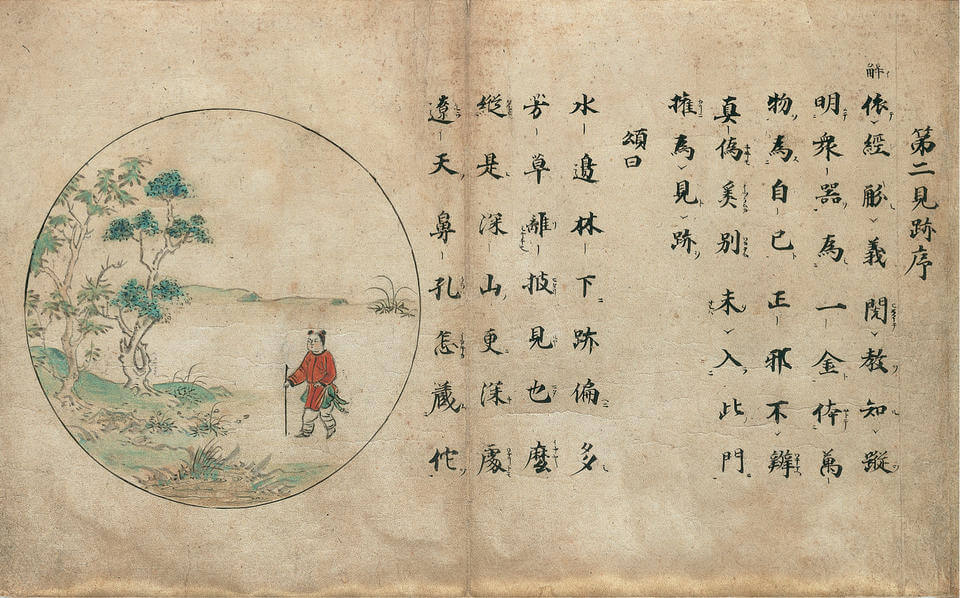 第二見跡序
依經解義閲教知蹤
明衆器為一金体萬
物為自己正邪不辨
真偽奚別未入此門
權為見跡
頌曰
水邊林下跡偏多
芳草離披見也麼
縦是深山更深處
遼天鼻孔怎蔵他